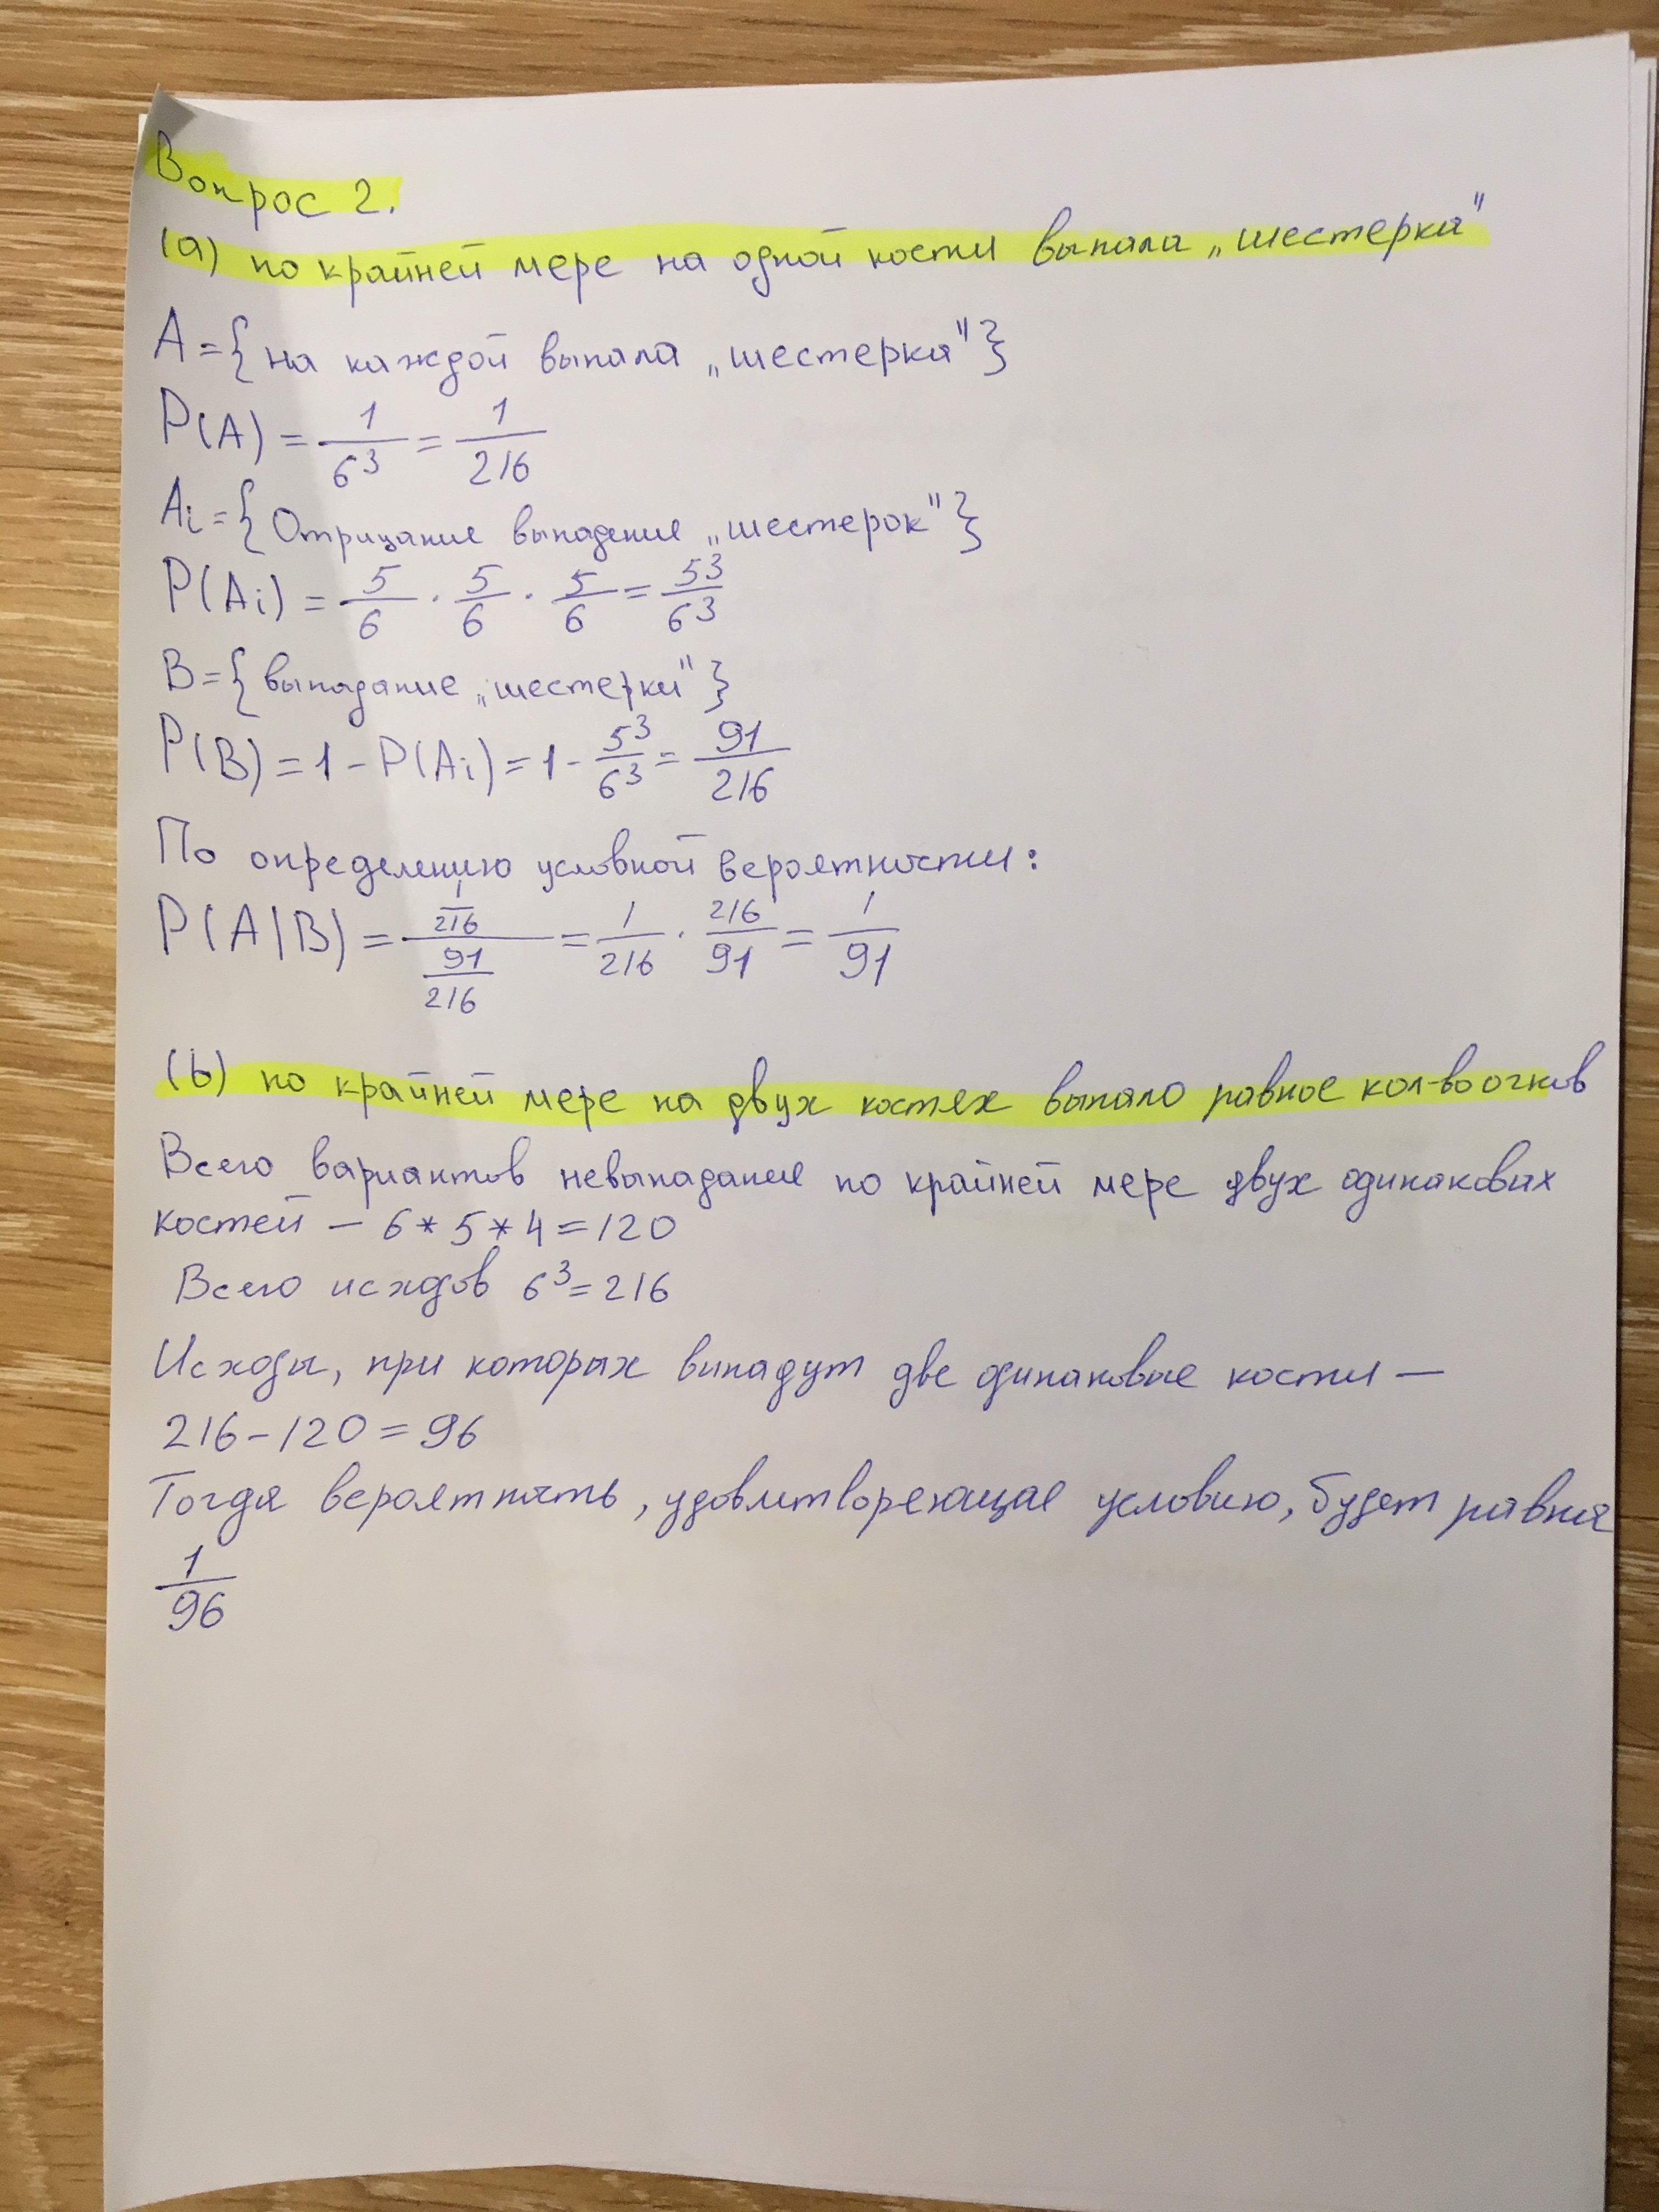 Вопрос 2.
(a) по крайней мере на одной кости выпала „шестерка"
A={на каждой выпала „шестерка"}
P(A) = 1/6³ = 1/216
Ai={Отрицание выпадения „шестерок"}
P(Ai) = 5/6 · 5/6 · 5/6 = 5³/6³
B={выпадание „шестерки"}
P(B) = 1 - P(Ai) = 1 - 5³/6³ = 91/216
По определению условной вероятности:
P(A|B) = (1/216)/(91/216) = 1/216 · 216/91 = 1/91
(b) по крайней мере на двух костях выпало равное кол-во очков
Всего вариантов невыпадания по крайней мере двух одинаковых
костей – 6*5*4=120
Всего исходов 6³=216
Исходы, при которых выпадут две одинаковые кости –
216-120=96
Тогда вероятность, удовлетворяющая условию, будет равна
1/96